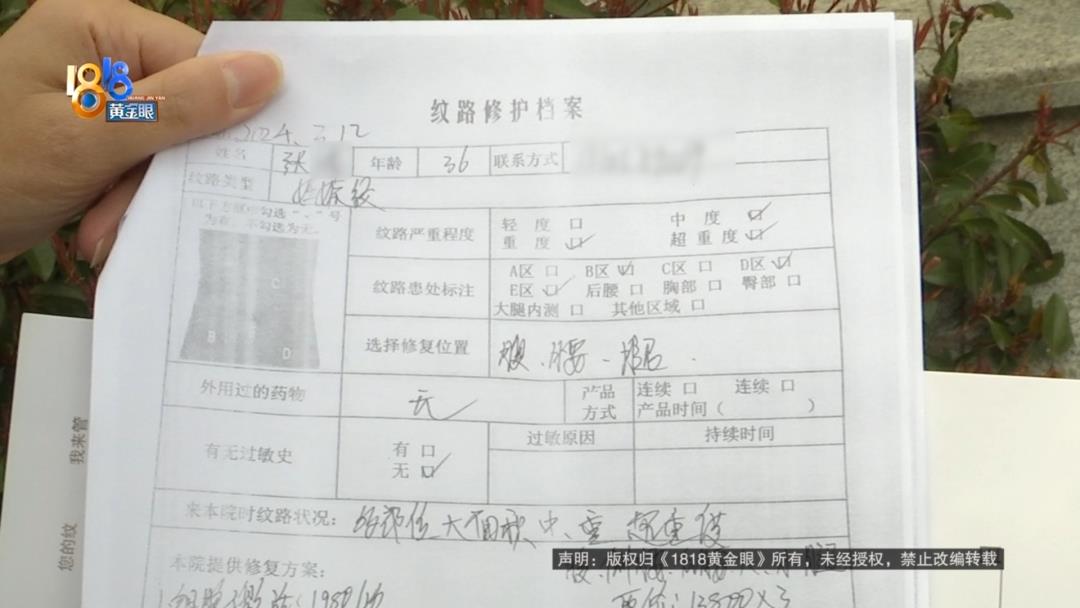 1818
HUANG JIN YAN
黄金眼
纹路修护档案
2024.3.12
姓名 张 年龄 36 联系方式
纹路类型 妊娠纹
以下方框中勾选“√”号
为有 不勾选为无。
C
B
D
纹路严重程度 轻度 口 中度 口√
重度 口√ 超重度 口√
纹路患处标注 A区 口 B区 口√ C区 口 D区 口√
E区 口√ 后腰 口 胸部 口 臀部 口
大腿内测 口 其他区域 口
选择修复位置 腹、腰、
外用过的药物 无 产品方式 连续 口 连续 口
产品时间( )
有无过敏史 有 口 过敏原因 持续时间
无 口√
来本院时纹路状况: 各部位大面积中、重、超重度
本院提供修复方案:
1980/次
原价:13800×3
您的纹 我来管
声明:版权归《1818黄金眼》所有,未经授权,禁止改编转载